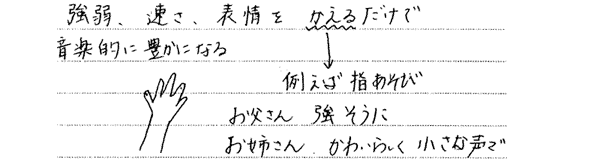 強弱、速さ、表情を かえるだけで
音楽的に豊かになる
例えば 指あそび
お父さん 強そうに
お姉さん かわいらしく 小さな声で